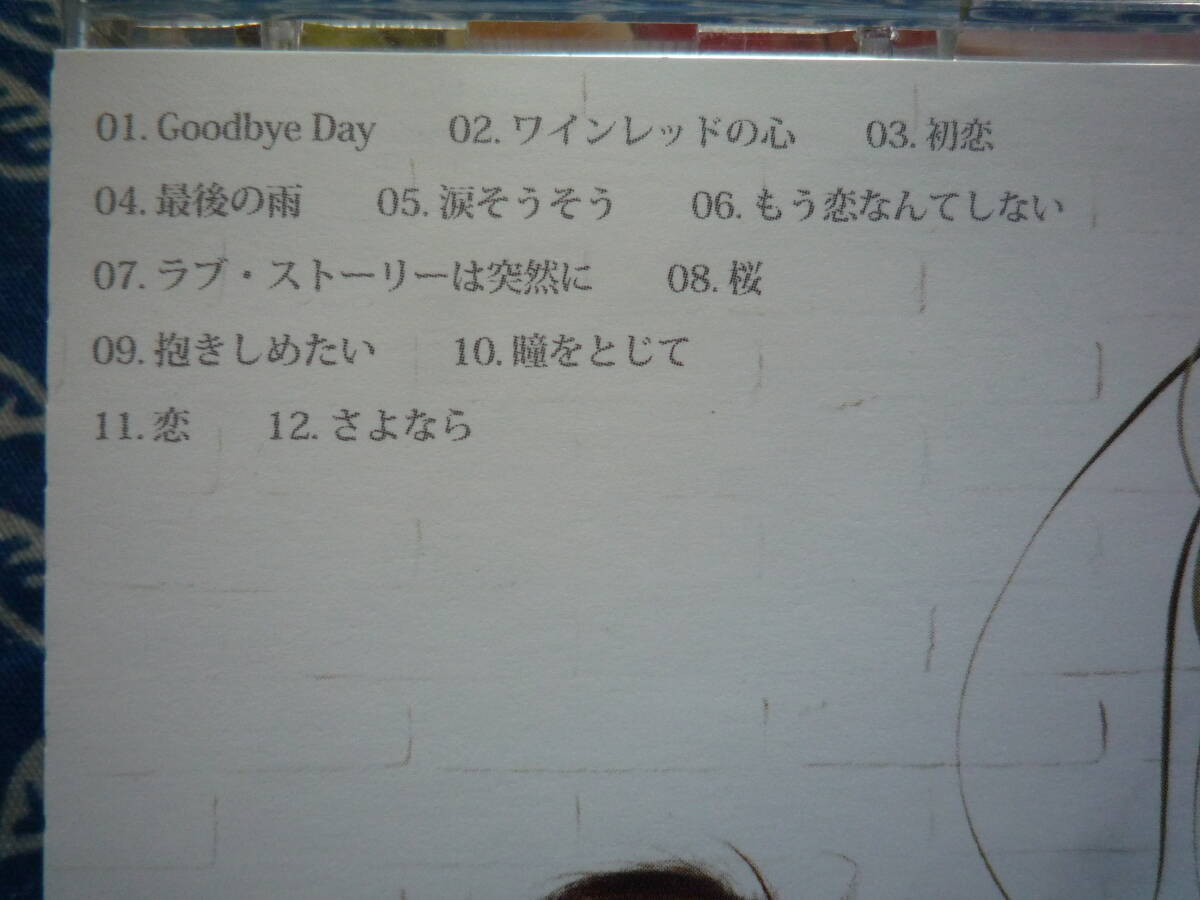 01. Goodbye Day 02. ワインレッドの心 03. 初恋
04. 最後の雨 05. 涙そうそう 06. もう恋なんてしない
07. ラブ・ストーリーは突然に 08. 桜
09. 抱きしめたい 10. 瞳をとじて
11. 恋 12. さよなら